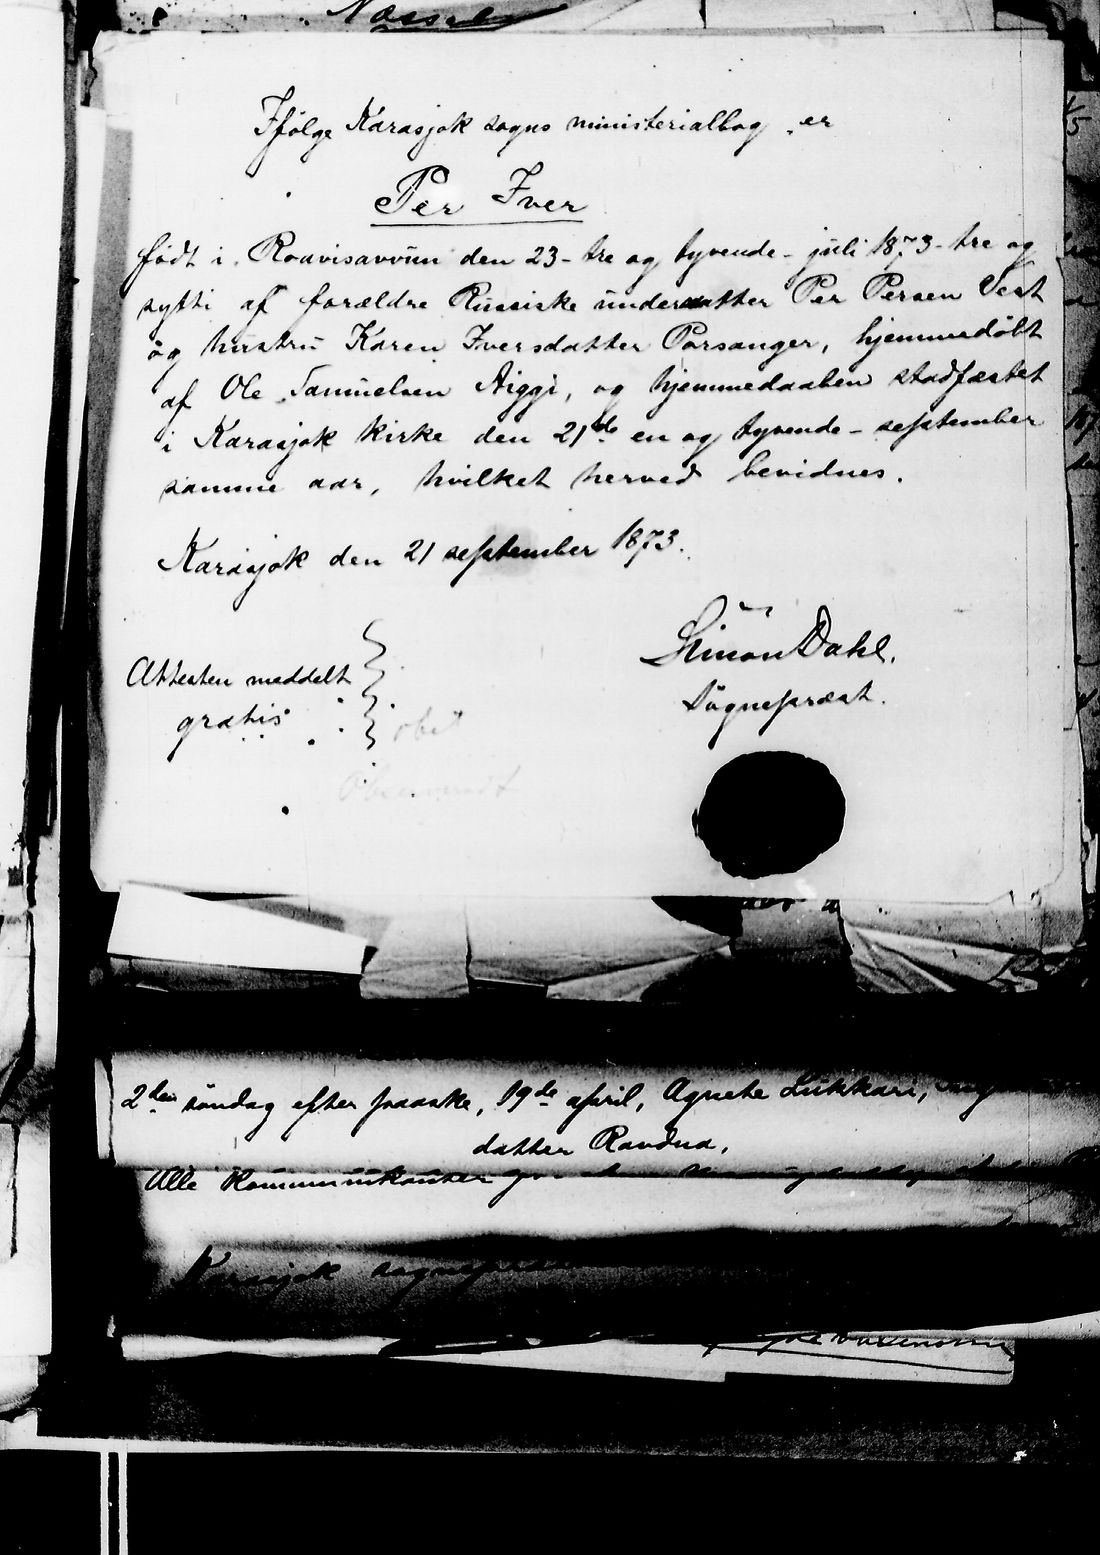 Ifølge Karasjok sogns ministerialbog er
Per Iver
født i Roavisavvun den 23 - tre og tyvende - juli 1873 - tre og
sytti af forældre Russiske undersatter Per Persen Vest
og hustru Karen Iversdatter Porsanger, hjemmedøbt
af Ole Samuelsen Aiggi, og hjemmedaaben stadfæstet
i Karasjok kirke den 21de en og tyvende - september
samme aar, hvilket herved bevidnes.
Karasjok den 21 september 1873.
Simon Dahl.
Sognepræst.
Attesten meddelt
gratis
2den søndag efter paaske, 19de april, Agnete Lukkari,
datter Ravdna.
Alle kommunikanter
Karasjok